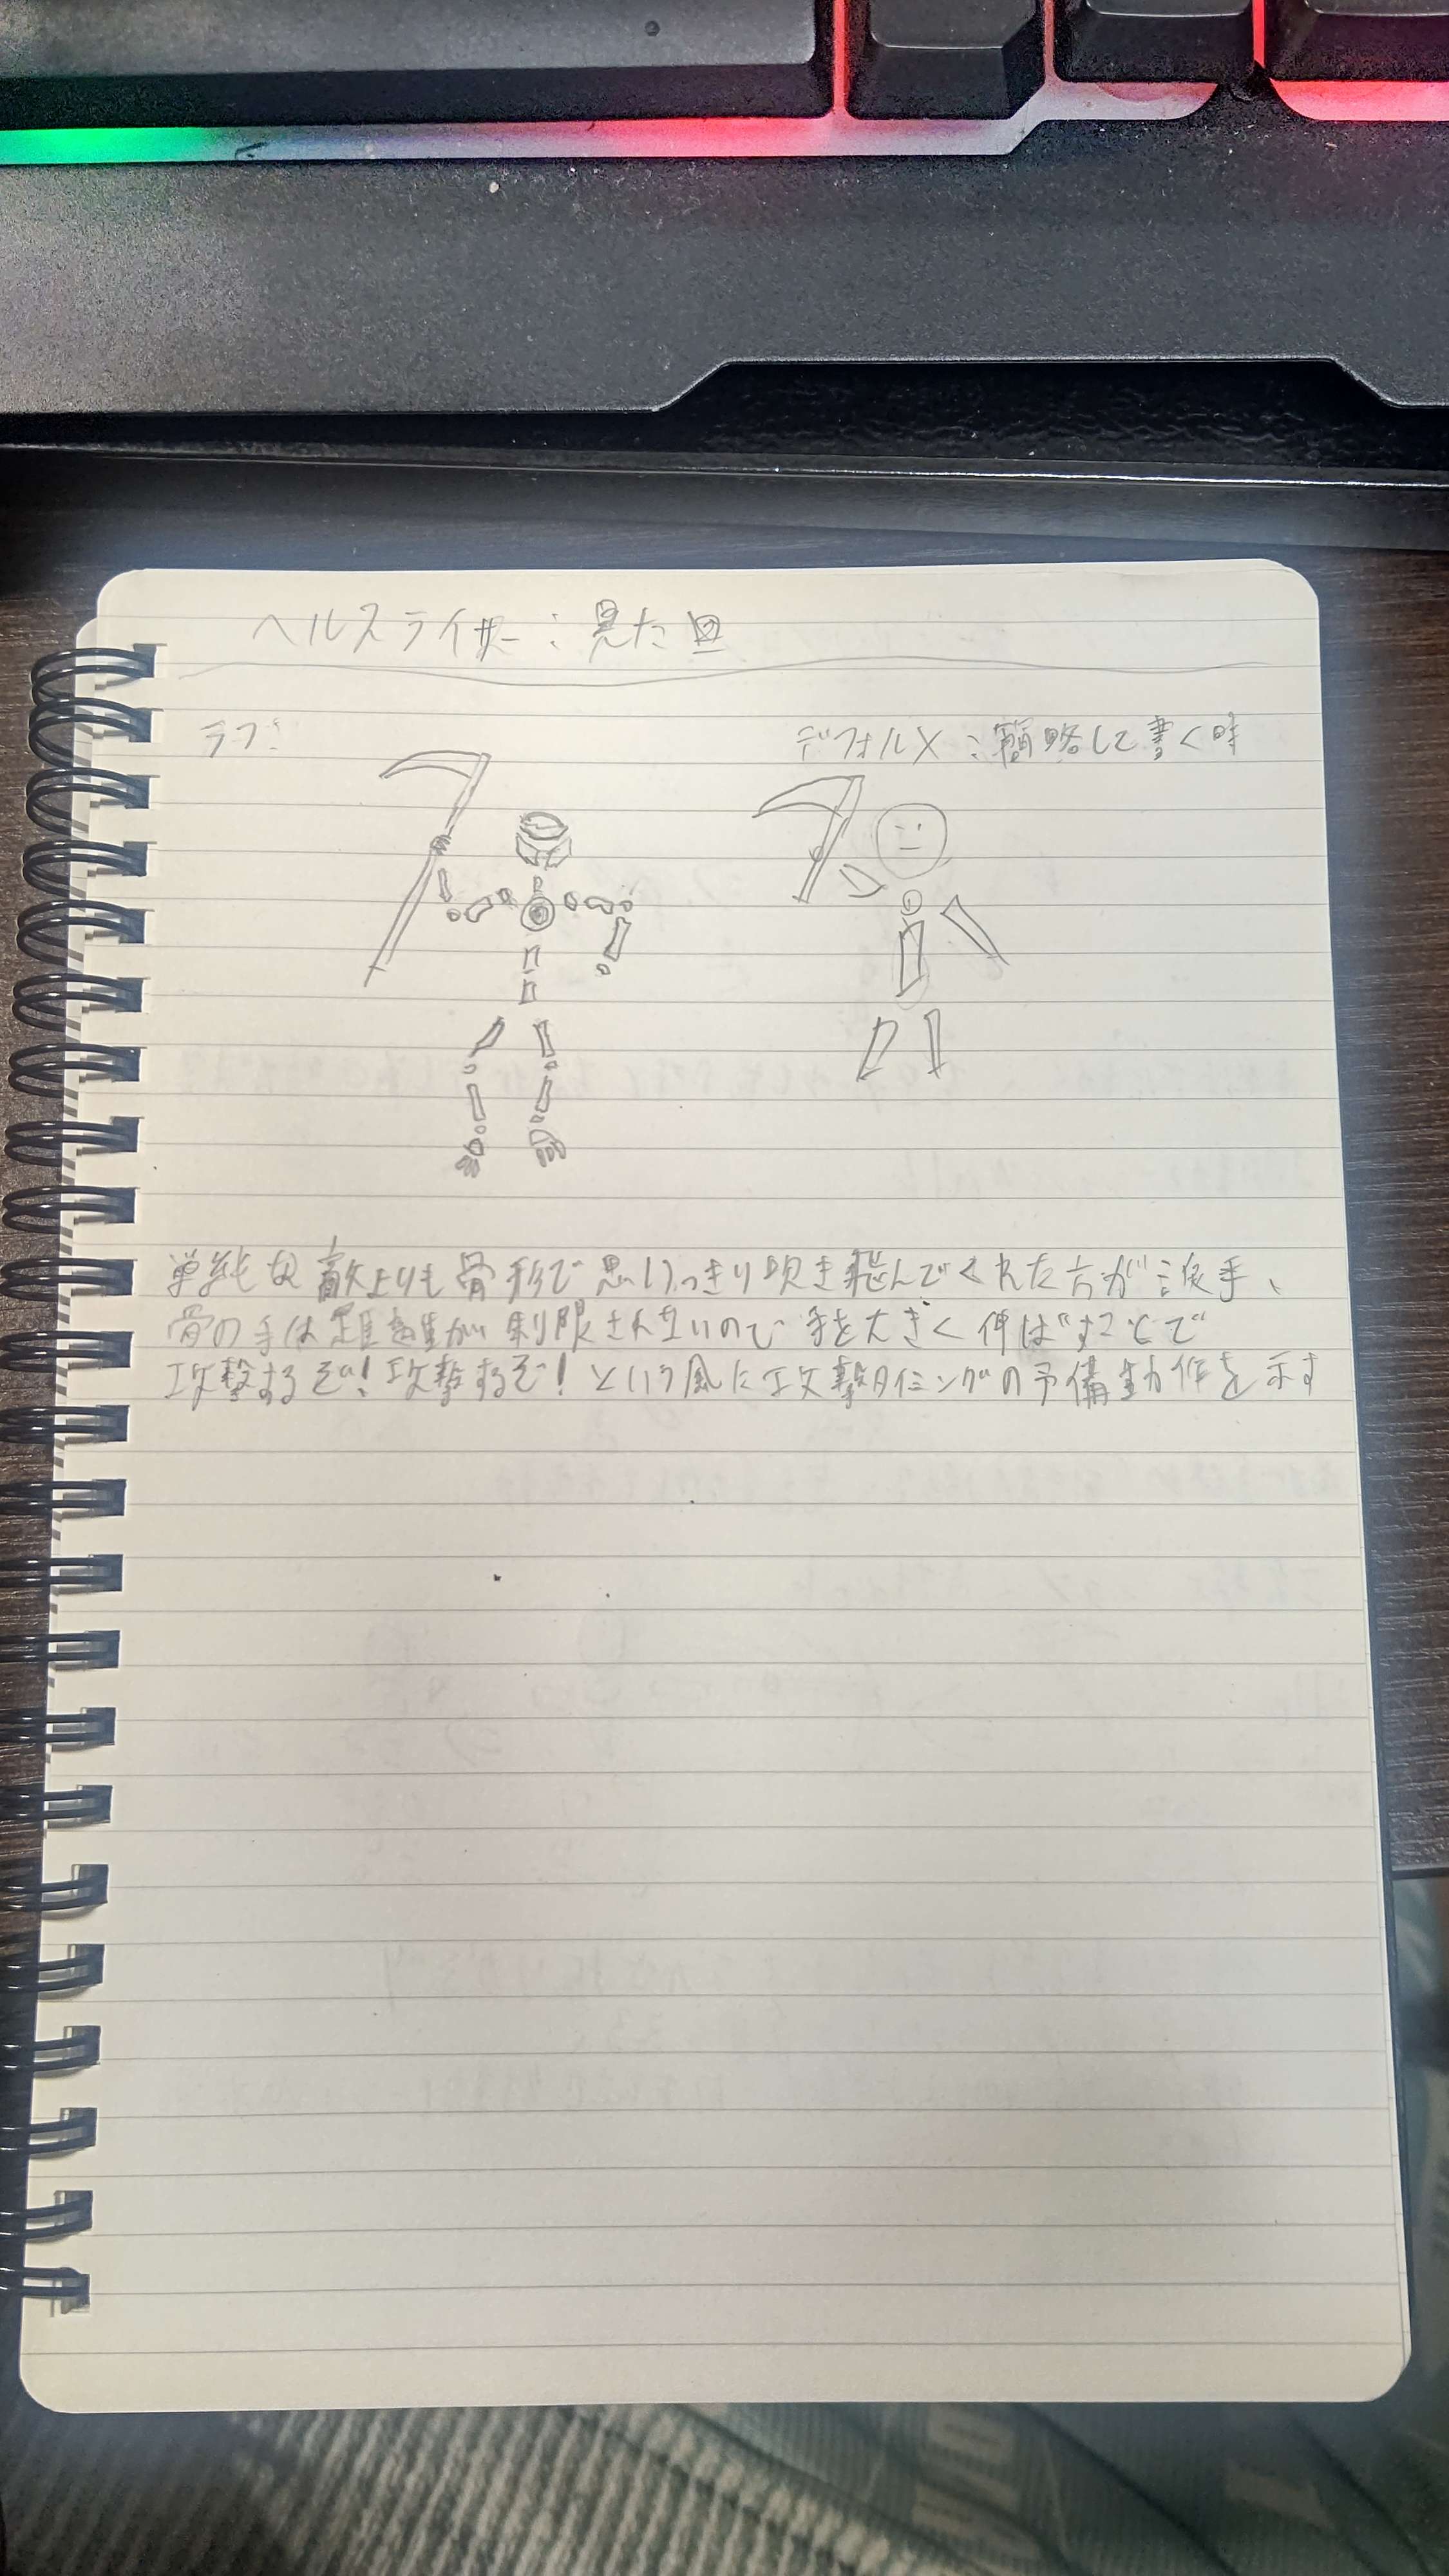 ヘルスライサー：見た目
ラフ：
デフォルメ：簡略して書く時
単純な敵よりも骨形で思いっきり吹き飛んでくれた方が派手、
骨の手は距離が制限されないので手を大きく伸ばすことで
攻撃するぞ！攻撃するぞ！という風に攻撃タイミングの予備動作を示す